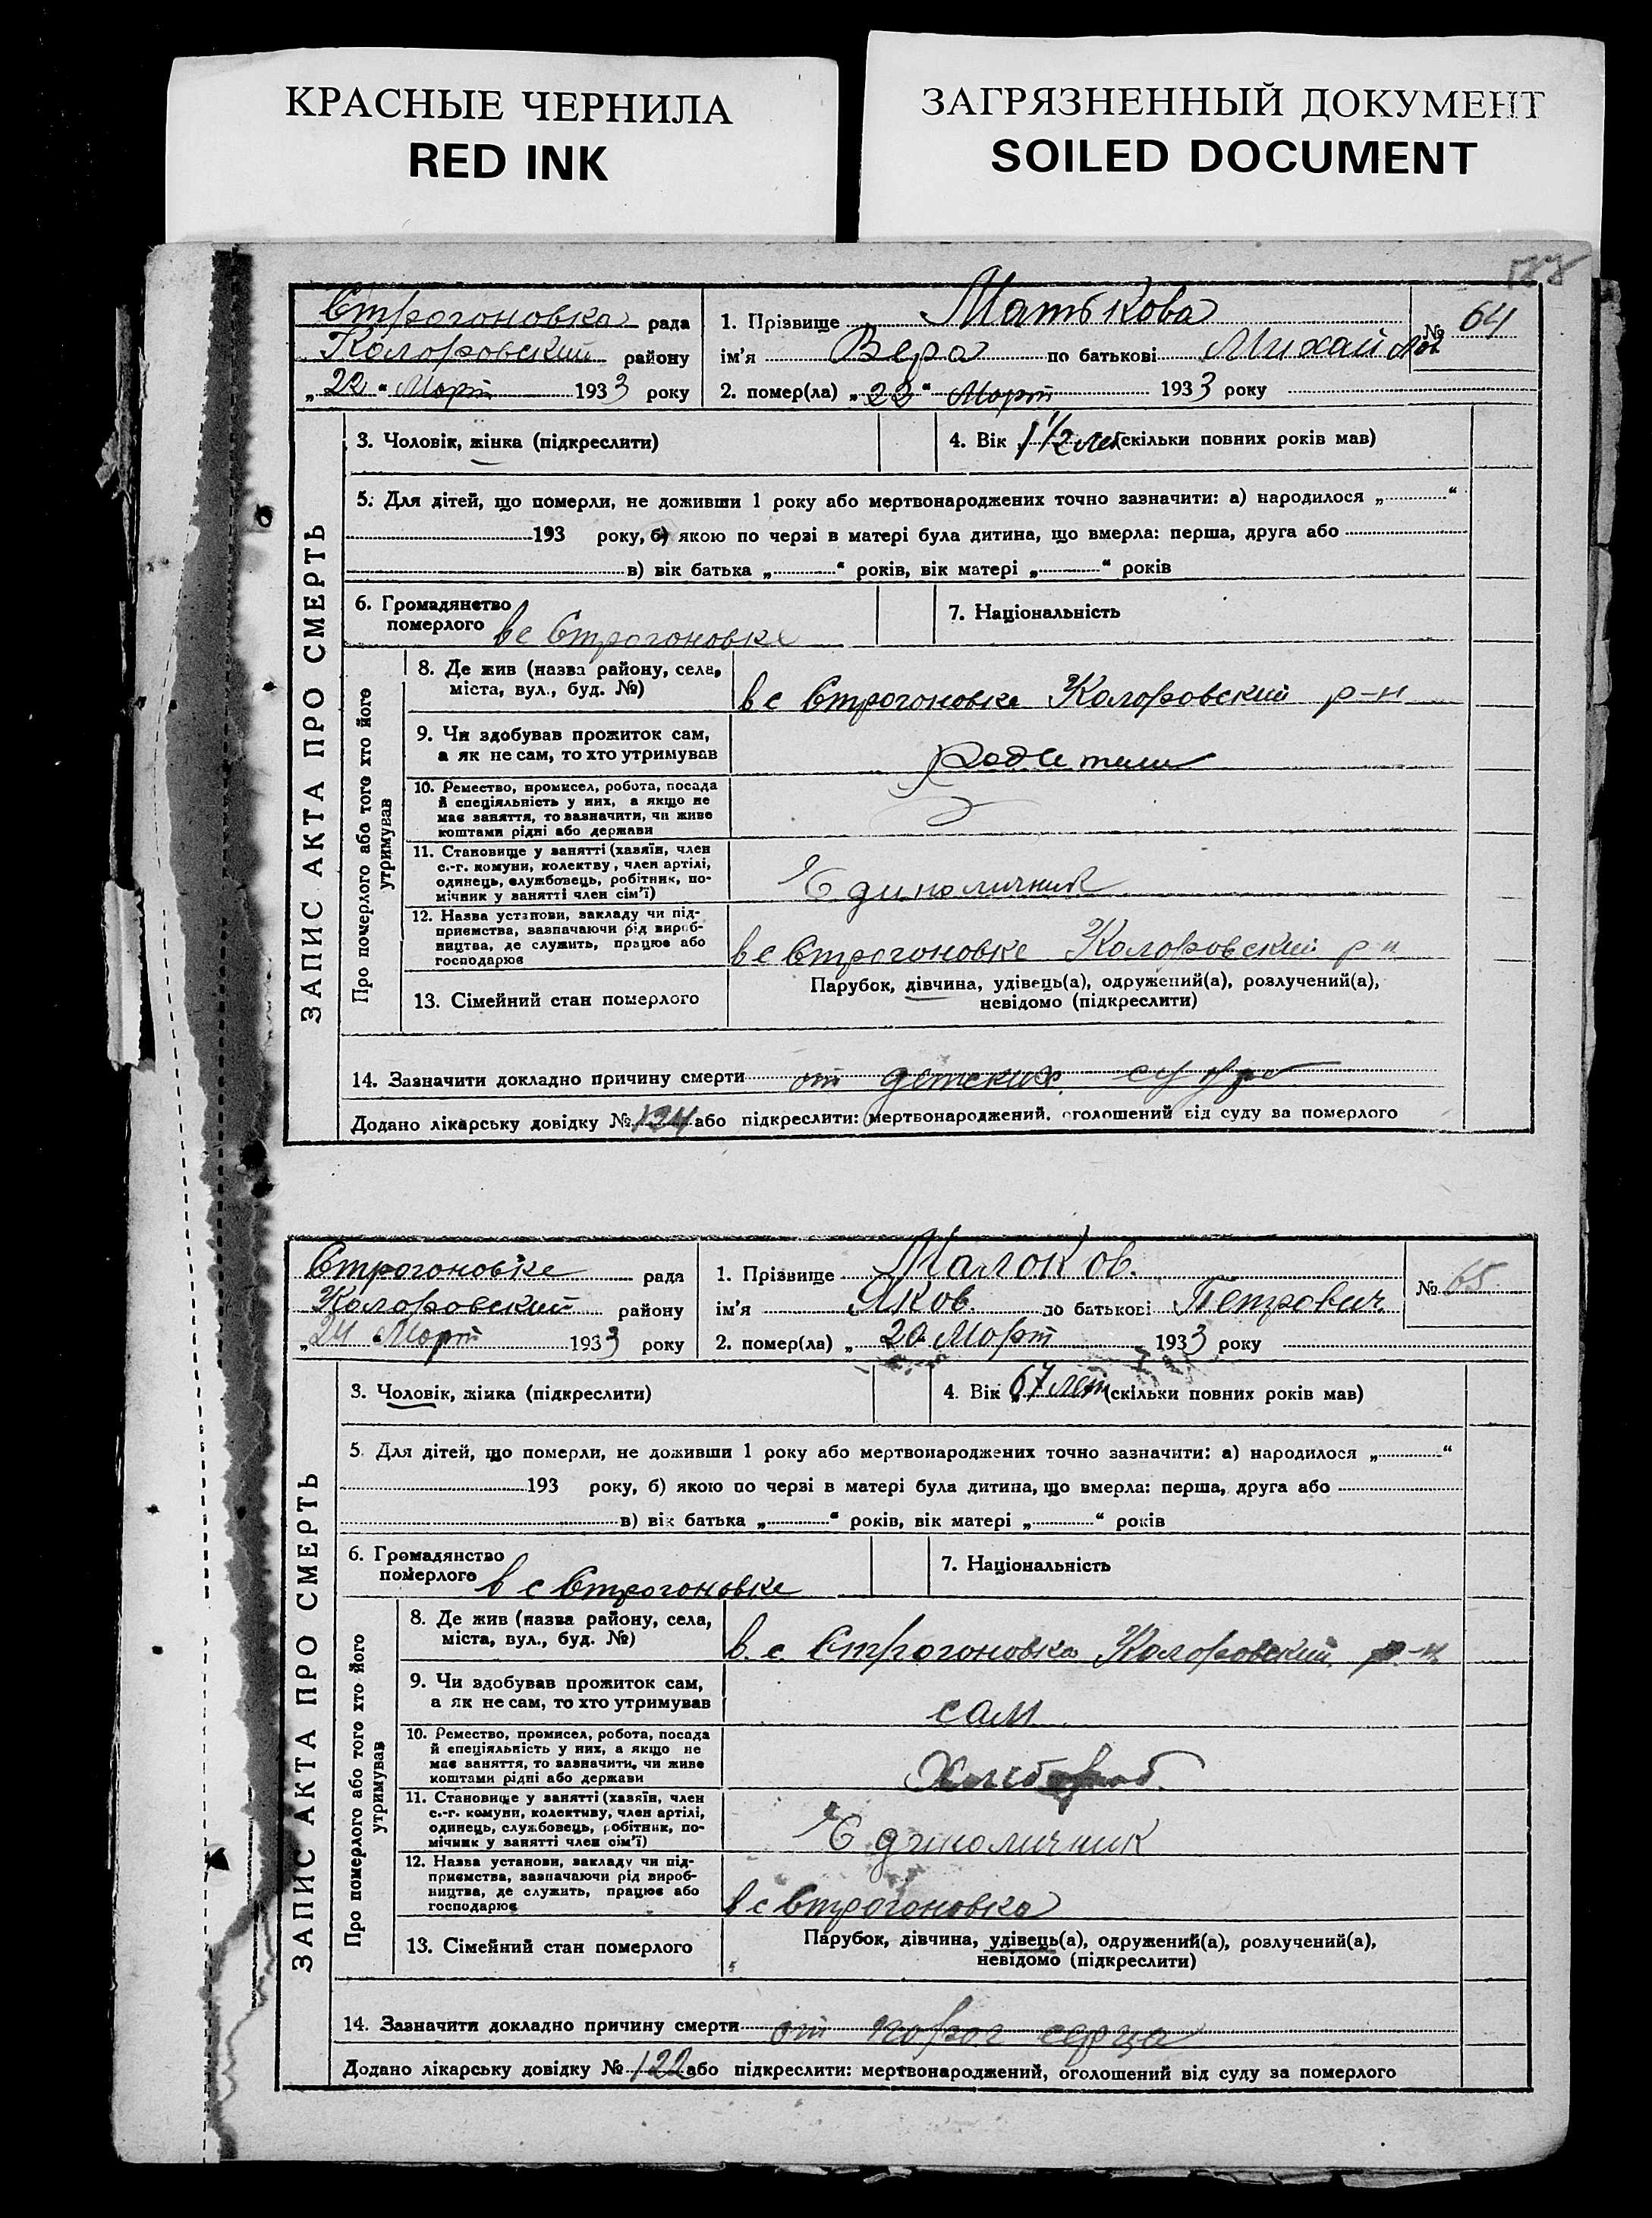 КРАСНЫЕ ЧЕРНИЛА
RED INK
ЗАГРЯЗНЕННЫЙ ДОКУМЕНТ
SOILED DOCUMENT
Строгоновка рада
Коларовский району
„22“ Март 1933 року
1. Прізвище Матькова
№ 64
ім'я Вера по батькові Михайлов
2. помер(ла) „22“ Март 1933 року
ЗАПИС АКТА ПРО СМЕРТЬ
3. Чоловік, жінка (підкреслити)
4. Вік 1 1/2 лет (скільки повних років мав)
5. Для дітей, що померли, не доживши 1 року або мертвонароджених точно зазначити: а) народилося „ “
193 року, б) якою по черзі в матері була дитина, що вмерла: перша, друга або
в) вік батька „ “ років, вік матері „ “ років
6. Громадянство
померлого в с Строгоновке
7. Національність
Про померлого або того хто його
утримував
8. Де жив (назва району, села,
міста, вул., буд. №)
в с Строгоновке Коларовский р-н
9. Чи здобував прожиток сам,
а як не сам, то хто утримував
родители
10. Ремество, промисел, робота, посада
й спеціяльність у них, а якщо не
має заняття, то зазначити, чи живе
коштами рідні або держави
11. Становище у занятті (хазяїн, член
с.-г. комуни, колектву, член артілі,
одинець, службовець, робітник, по-
мічник у занятті член сім'ї)
Единоличник
12. Назва установи, закладу чи під-
приємства, зазначаючи рід вироб-
ництва, де служить, працює або
господарює
в с Строгоновке Коларовский р н
13. Сімейний стан померлого
Парубок, дівчина, удівець(а), одружений(а), розлучений(а),
невідомо (підкреслити)
14. Зазначити докладно причину смерти от детских
Додано лікарську довідку № 124 або підкреслити: мертвонароджений, оголошений від суду за померлого
Строгоновке рада
Коларовский району
„24 Март 1933 року
1. Прізвище Малоков.
№ 65
ім'я Яков. по батькові Петрович
2. помер(ла) „ 20 Март 1933 року
ЗАПИС АКТА ПРО СМЕРТЬ
3. Чоловік, жінка (підкреслити)
4. Вік „67 лет (скільки повних років мав)
5. Для дітей, що померли, не доживши 1 року або мертвонароджених точно зазначити: а) народилося „ “
193 року, б) якою по черзі в матері була дитина, що вмерла: перша, друга або
в) вік батька „ “ років, вік матері „ “ років
6. Громадянство
померлого в с Строгоновке
7. Національність
Про померлого або того хто його
утримував
8. Де жив (назва району, села,
міста, вул., буд. №)
в. с. Строгоновка Коларовский р-н
9. Чи здобував прожиток сам,
а як не сам, то хто утримував
сам
10. Ремество, промисел, робота, посада
й спеціяльність у них, а якщо не
має заняття, то зазначити, чи живе
коштами рідні або держави
11. Становище у занятті (хазяїн, член
с.-г. комуни, колективу, член артілі,
одинець, службовець, робітник, по-
мічник у занятті член сім'ї)
Единоличник
12. Назва установи, закладу чи під-
приємства, зазначаючи рід вироб-
ництва, де служить, працює або
господарює
в с Строгоновка
13. Сімейний стан померлого
Парубок, дівчина, удівець(а), одружений(а), розлучений(а),
невідомо (підкреслити)
14. Зазначити докладно причину смерти от порог серца
Додано лікарську довідку № 122 або підкреслити: мертвонароджений, оголошений від суду за померлого